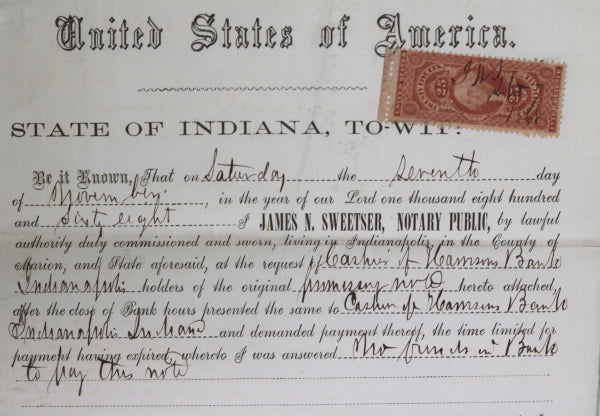 United States of America.
STATE OF INDIANA, TO-WIT:
Be it Known, That on Saturday the seventh day
of November, in the year of our Lord one thousand eight hundred
and sixty eight I JAMES N. SWEETSER, NOTARY PUBLIC, by lawful
authority duly commissioned and sworn, living in Indianapolis, in the County of
Marion, and State aforesaid, at the request of Cashier of Harrisons Bank
Indianapolis holders of the original promissory note hereto attached,
after the close of Bank hours presented the same to Cashier of Harrisons Bank
Indianapolis Indiana and demanded payment thereof, the time limited for
payment having expired, whereto I was answered No funds in Bank
to pay this note